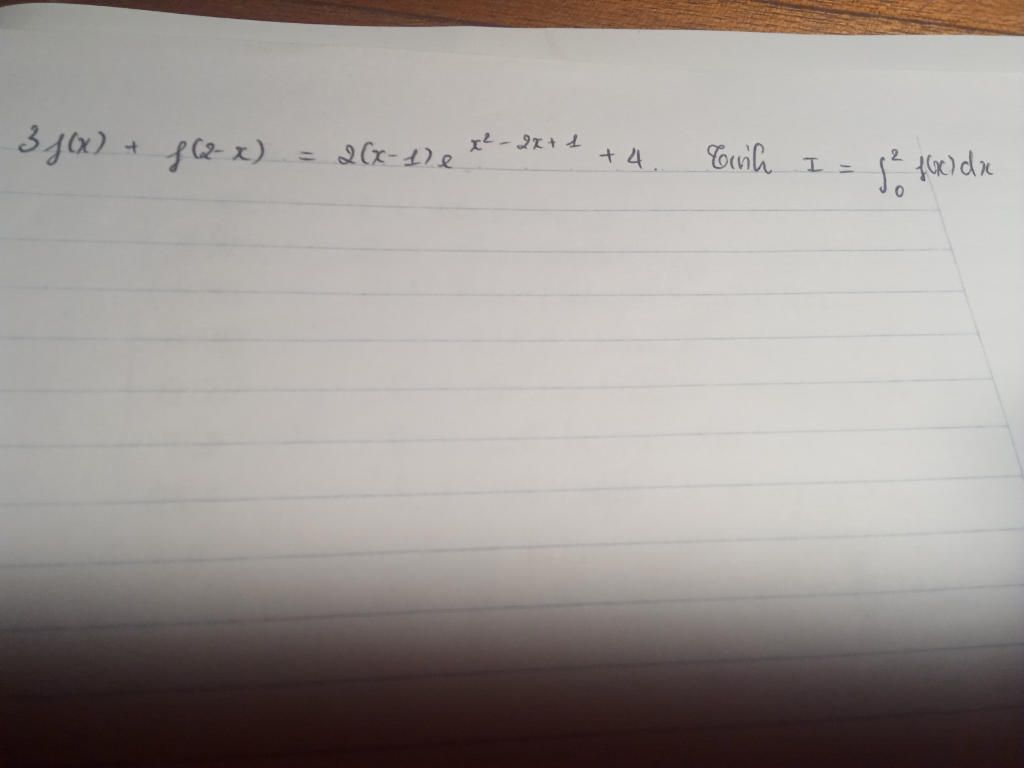 3f(x) + f(2-x) = 2(x-1)e^{x^2-2x+1} + 4. Tính I = ∫_0^2 f(x)dx